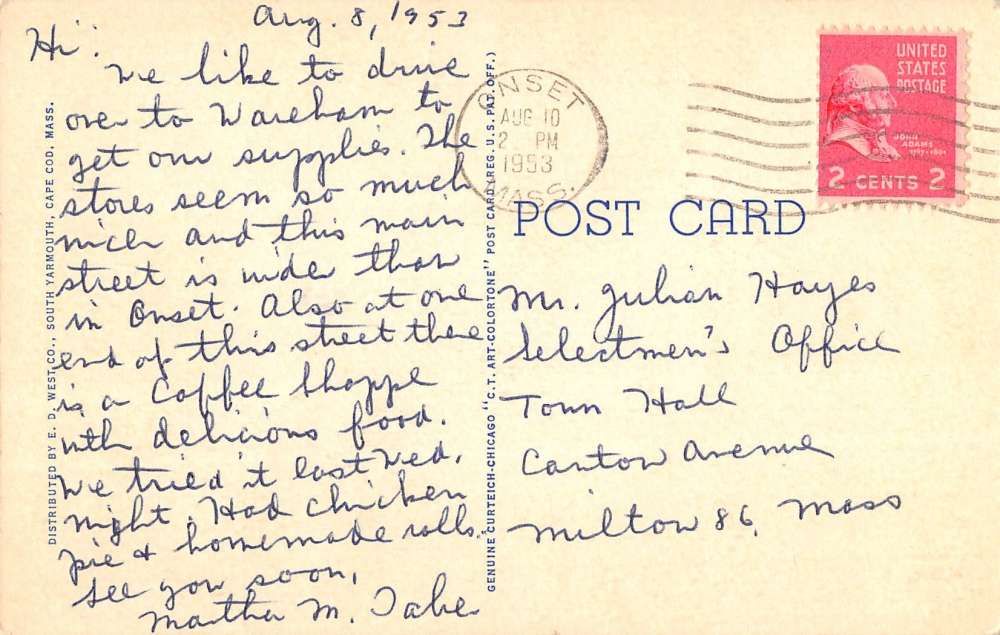 Aug. 8, 1953
Hi:
We like to drive
over to Wareham to
get our supplies. The
stores seem so much
nicer and this main
street is wider than
in Onset. Also at one
end of this street there
is a Coffee Shoppe
with delicious food.
We tried it last Wed.
night. Had chicken
pie & homemade rolls.
See you soon,
Martha M.
DISTRIBUTED BY E. D. WEST CO., SOUTH YARMOUTH, CAPE COD, MASS.
GENUINE CURTEICH-CHICAGO "C. T. ART-COLORTONE" POST CARD (REG. U. S. PAT. OFF.)
ONSET
AUG 10
2 PM
1953
MASS.
UNITED
STATES
POSTAGE
JOHN
ADAMS
1797-1801
2 CENTS 2
POST CARD
Mr. Julian Hayes
Selectmen's Office
Town Hall
Canton Avenue
Milton 86, Mass